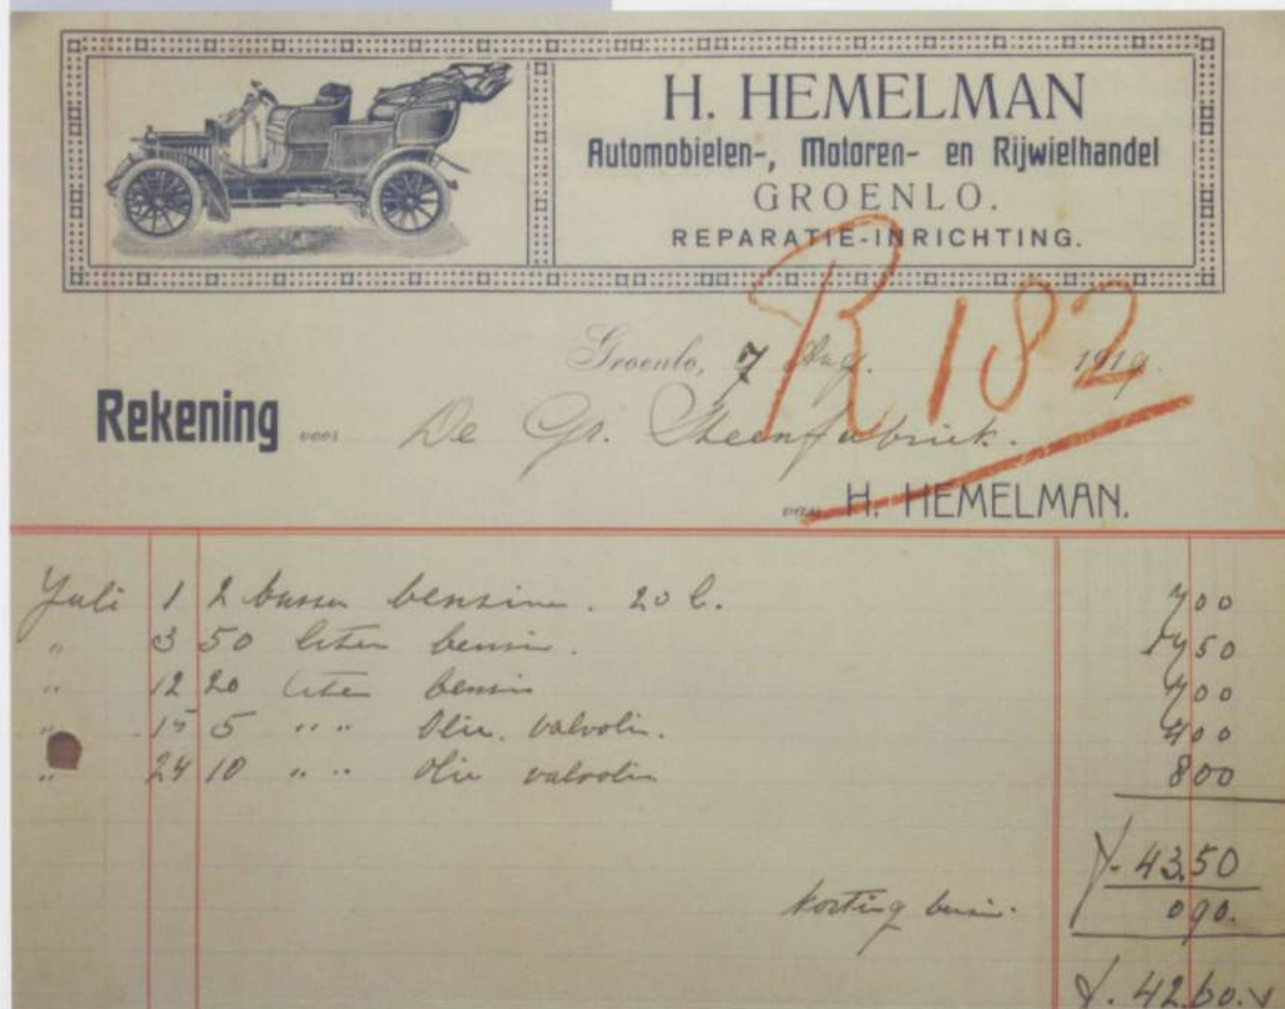 H. HEMELMAN
Automobielen-, Motoren- en Rijwielhandel
GROENLO.
REPARATIE-INRICHTING.
R 182
Groenlo, 7 Aug. 1919.
Rekening voor De Gr. Steenfabriek.
van H. HEMELMAN.
Juli 1 2 bussen bensine. 20 l. 7 00
" 3 50 liter bensin. 17 50
" 12 20 liter bensin 7 00
" 15 5 " " Olie. valvolin. 4 00
" 24 10 " " Olie valvolin 8 00
f. 43.50
korting bensin. 0 90.
f. 42.60.